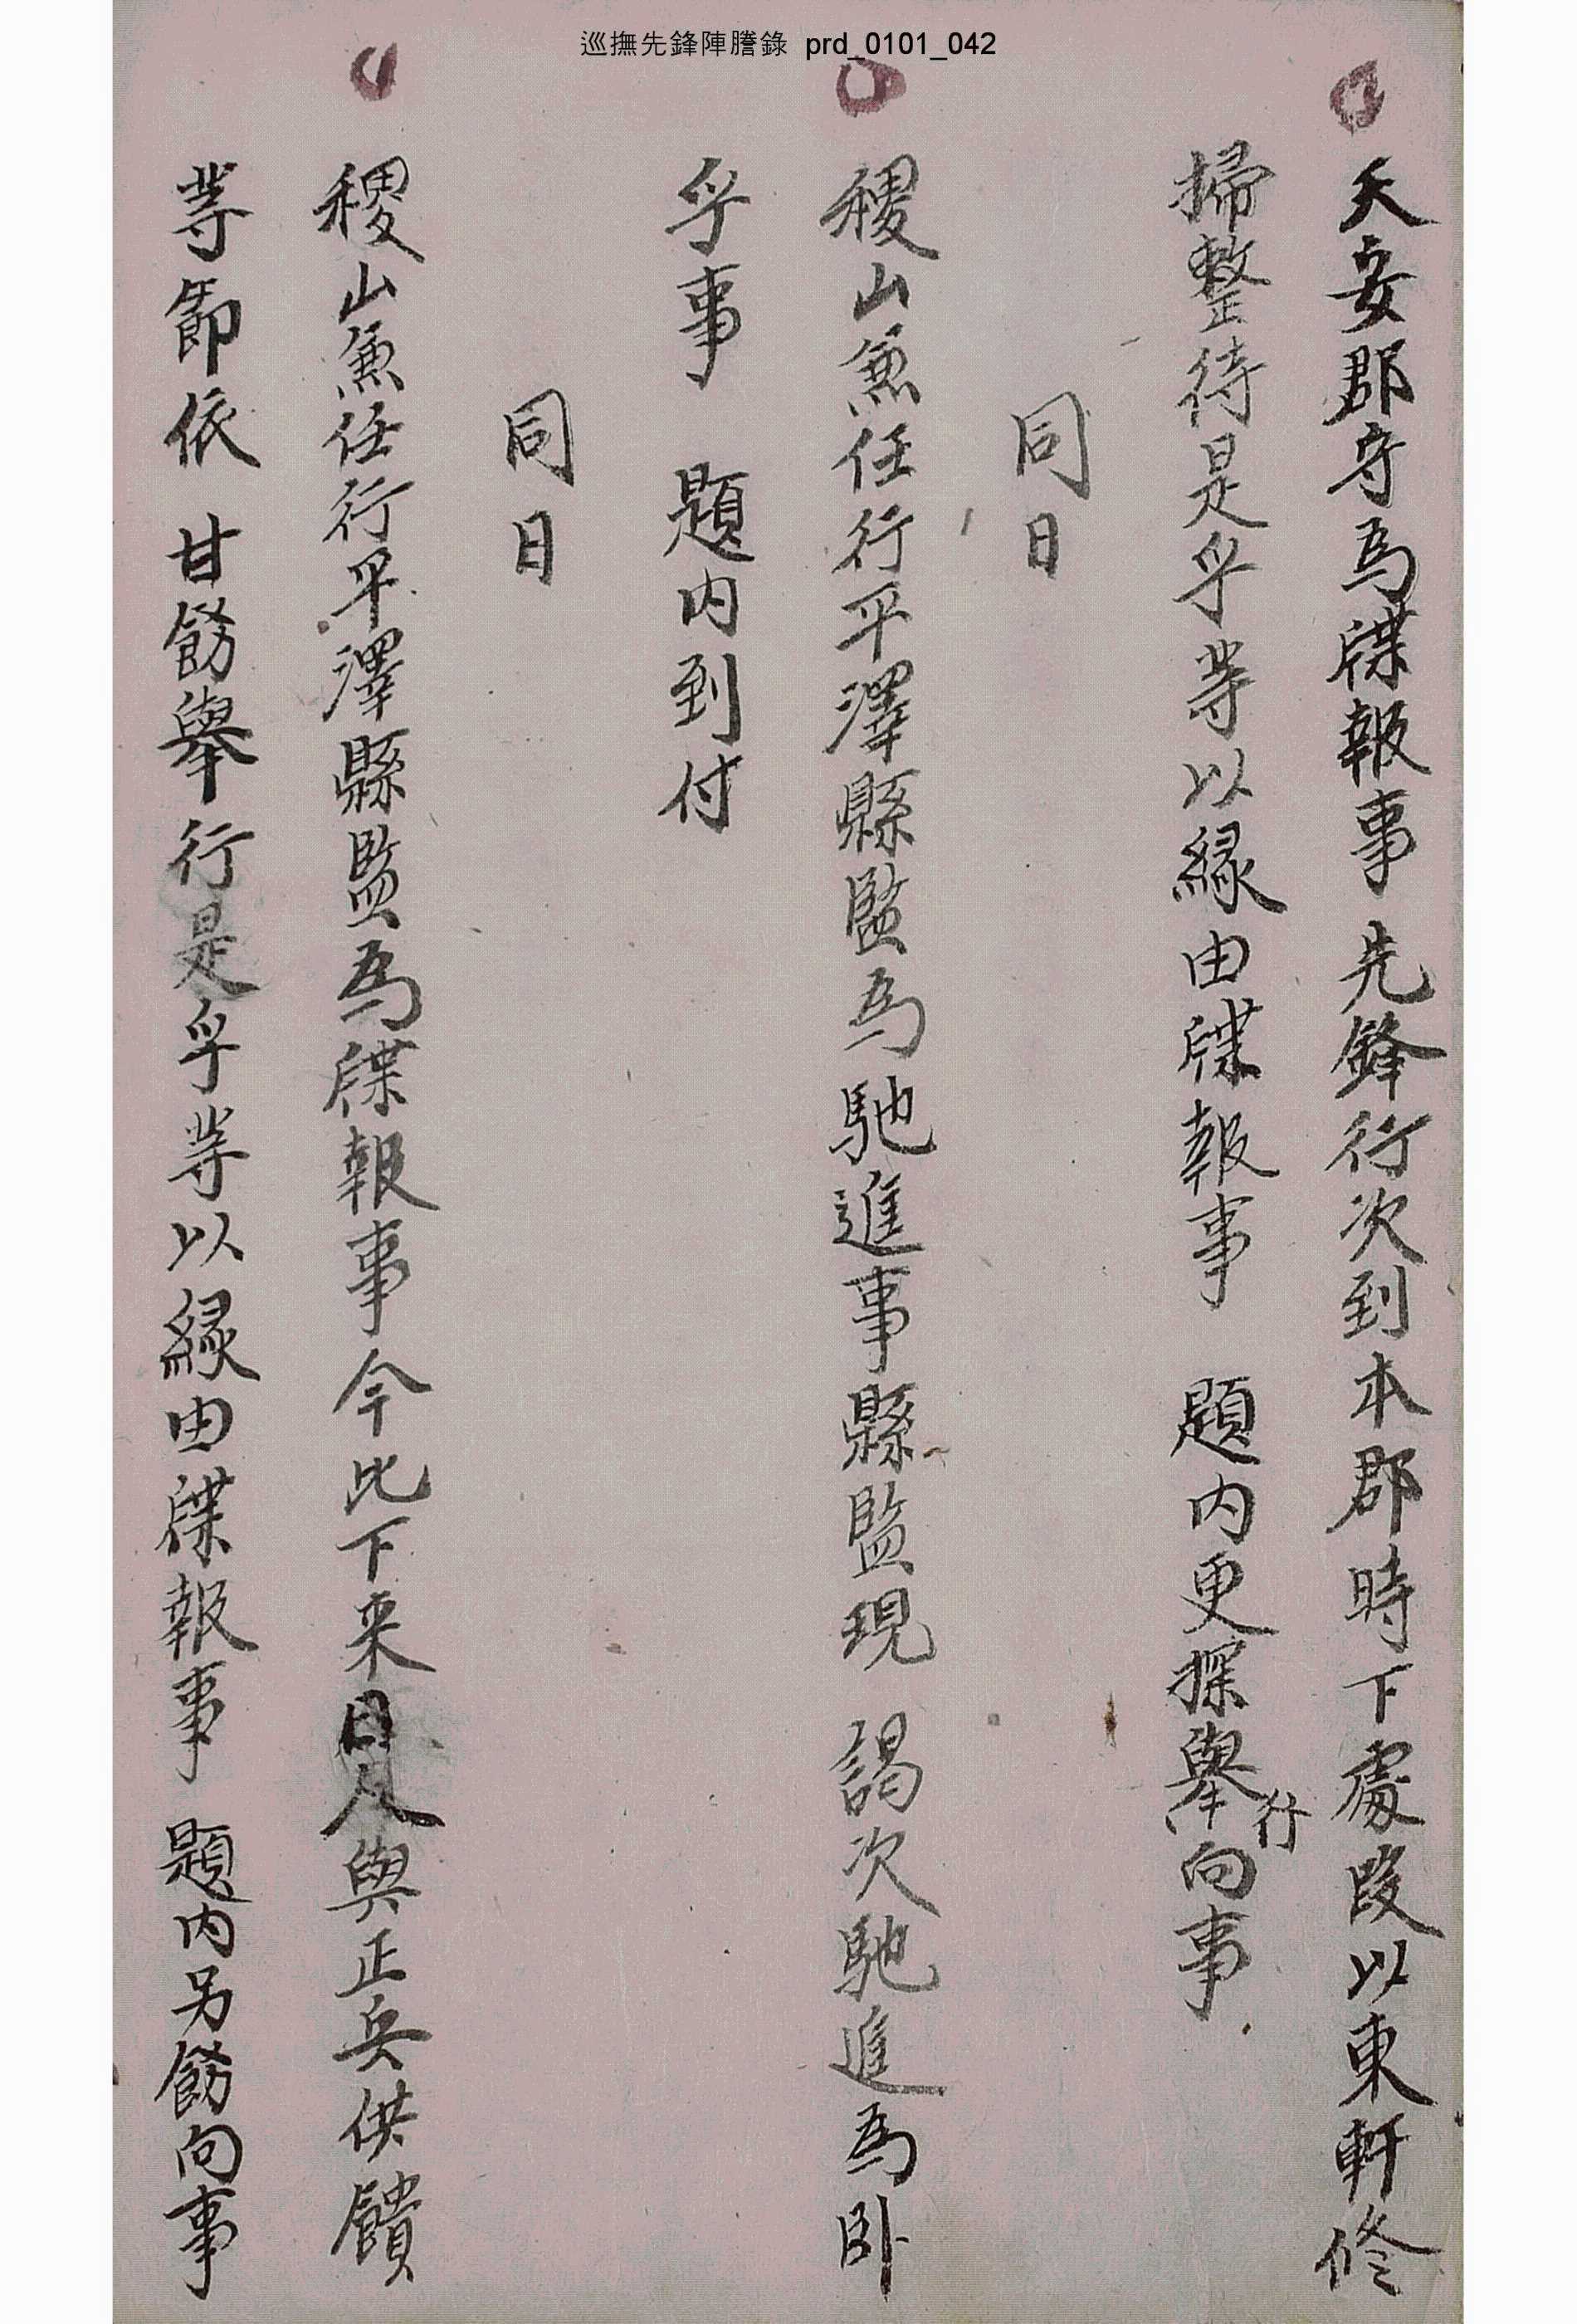 巡撫先鋒陣謄錄 prd_0101_042
天安郡守爲牒報事先鋒行次到本郡時下處段以東軒修
掃整待是乎等以緣由牒報事 題內更探舉行向事
同日
稷山兼任行平澤縣監爲馳進事縣監現 謁次馳進爲卧
乎事 題內到付
同日
稷山兼任行平澤縣監爲牒報事今此下来日人與正兵供饋
等節依 甘飭舉行是乎等以緣由牒報事 題內另飭向事